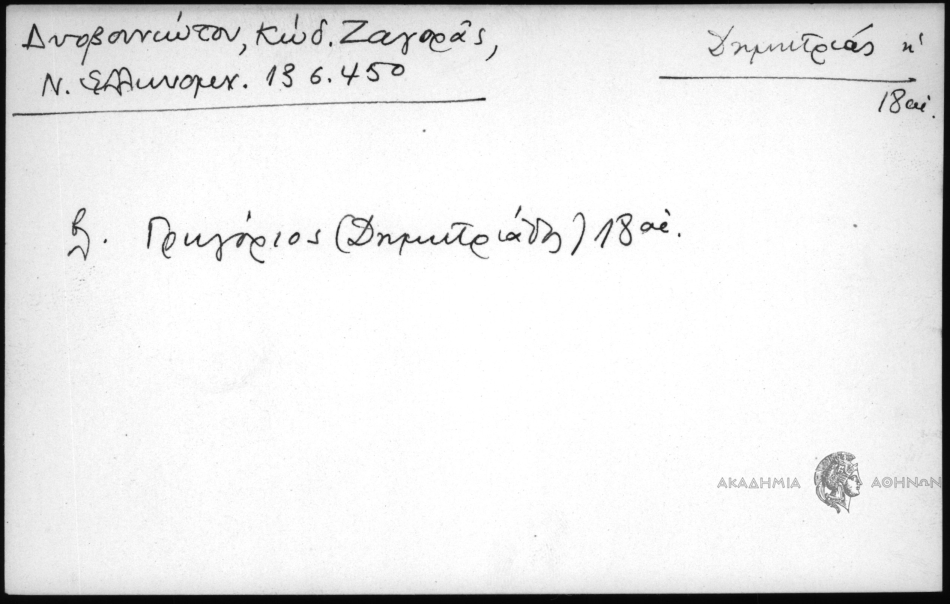 Δυοβουνιώτου, Κώδ. Ζαγορᾶς,
Ν. Ἑλληνομν. 13 6.450
Δημητριάς η'
18 αἰ.
βλ. Γρηγόριος (Δημητριάδος) 18 αἰ.
ΑΚΑΔΗΜΙΑ ΑΘΗΝΩΝ